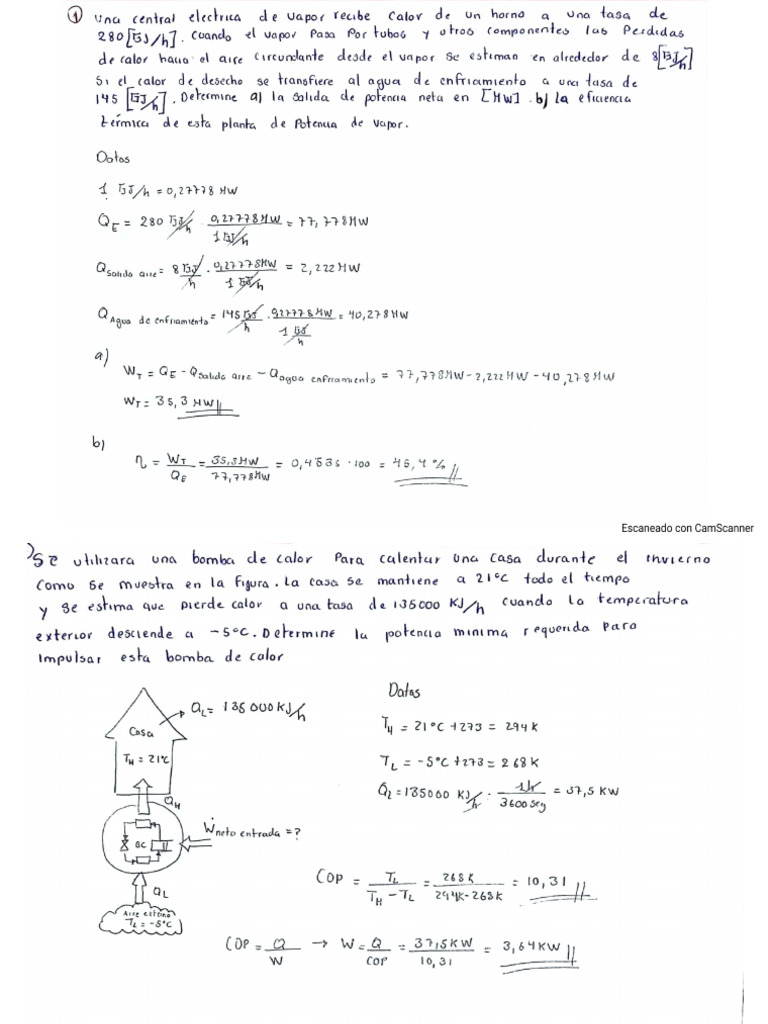 ① Una central electrica de vapor recibe calor de un horno a una tasa de
280 [GJ/h]. Cuando el vapor pasa por tubos y otros componentes las perdidas
de calor hacia el aire circundante desde el vapor se estiman en alrededor de 8[GJ/h]
Si el calor de desecho se transfiere al agua de enfriamiento a una tasa de
145 [GJ/h]. Determine a) la salida de potencia neta en [MW]. b) la eficiencia
térmica de esta planta de potencia de vapor.
Datos
1 GJ/h = 0,27778 MW
QE = 280 GJ/h · 0,27778 MW / 1 GJ/h = 77,778MW
Qsalida aire = 8 GJ/h · 0,27778MW / 1 GJ/h = 2,222 MW
QAgua de enfriamiento = 145 GJ/h · 0,27778 MW / 1 GJ/h = 40,278 MW
a)
WT = QE - Qsalida aire - Qagua enfriamiento = 77,778MW - 2,222 MW - 40,278 MW
WT = 35,3 MW
b)
η = WT / QE = 35,3MW / 77,778MW = 0,4536 · 100 = 45,4 %
Escaneado con CamScanner
) Se utilizara una bomba de calor para calentar una casa durante el invierno
como se muestra en la figura. La casa se mantiene a 21°C todo el tiempo
y se estima que pierde calor a una tasa de 135000 KJ/h cuando la temperatura
exterior desciende a -5°C. Determine la potencia minima requerida para
impulsar esta bomba de calor
QL = 135 000 KJ/h
Casa
TH = 21°C
QH
BC
Ẇneto entrada = ?
QL
Aire externo
TL = -5°C
Datos
TH = 21°C + 273 = 294 K
TL = -5°C + 273 = 268 K
QL = 135000 KJ/h · 1h / 3600 seg = 37,5 KW
COP = TL / TH - TL = 268 K / 294K - 268 K = 10,31
COP = Q / W → W = Q / COP = 37,5 KW / 10,31 = 3,64 KW